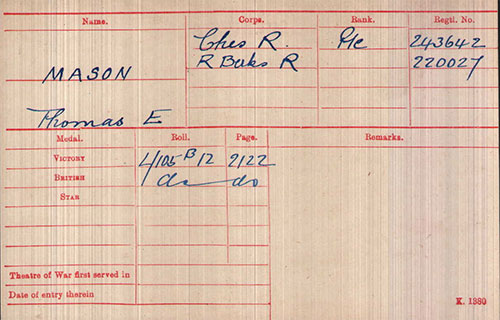 Name. Corps. Rank. Regtl. No.
Ches R. Pte 243642
MASON R Berks R 220027
Thomas E
Medal. Roll. Page. Remarks.
VICTORY L/105 B12 2122
BRITISH do do
STAR
Theatre of War first served in
Date of entry therein
K. 1380